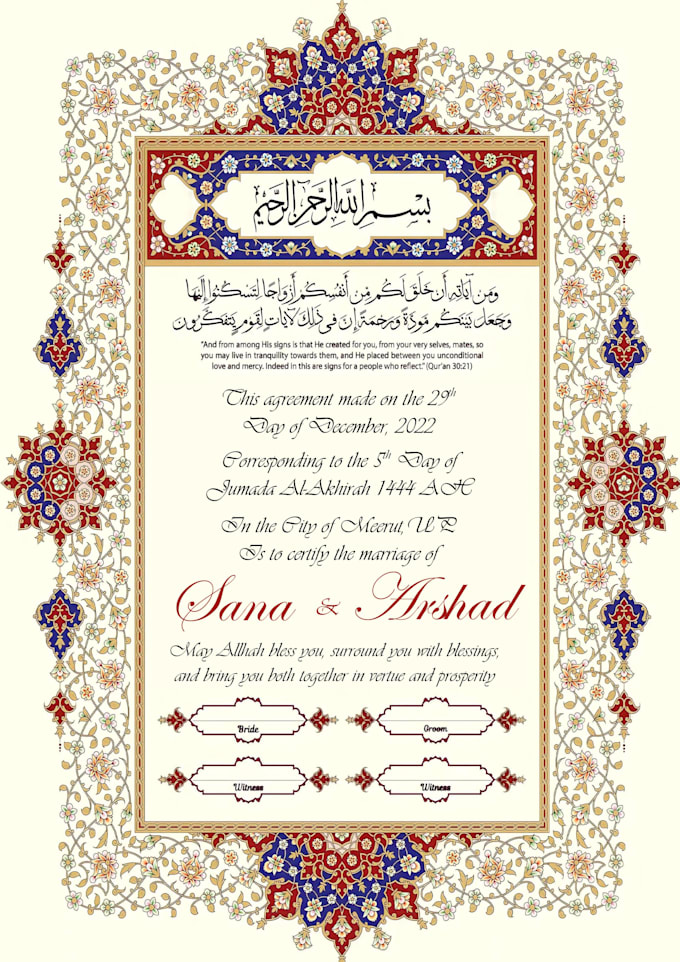 بِسْمِ اللهِ الرَّحْمٰنِ الرَّحِيْمِ
وَمِن آيَاتِهِ أَن خَلَقَ لَكُم مِن أَنفُسِكُم أَزوَاجًا لِتَسكُنُوا إِلَيهَا
وَجَعَلَ بَينَكُم مَوَدَّةً وَرَحمَةً إِن فِي ذَلِكَ لَآيَاتٍ لِقَومٍ يَتَفَكَّرُونَ
"And from among His signs is that He created for you, from your very selves, mates, so
you may live in tranquility towards them, and He placed between you unconditional
love and mercy. Indeed in this are signs for a people who reflect." (Qur'an 30:21)
This agreement made on the 29th
Day of December, 2022
Corresponding to the 5th Day of
Jumada Al-Akhirah 1444 AH
In the City of Meerut, UP
Is to certify the marriage of
Sana & Arshad
May Allhah bless you, surround you with blessings,
and bring you both together in vertue and prosperity
Bride Groom
Witness Witness